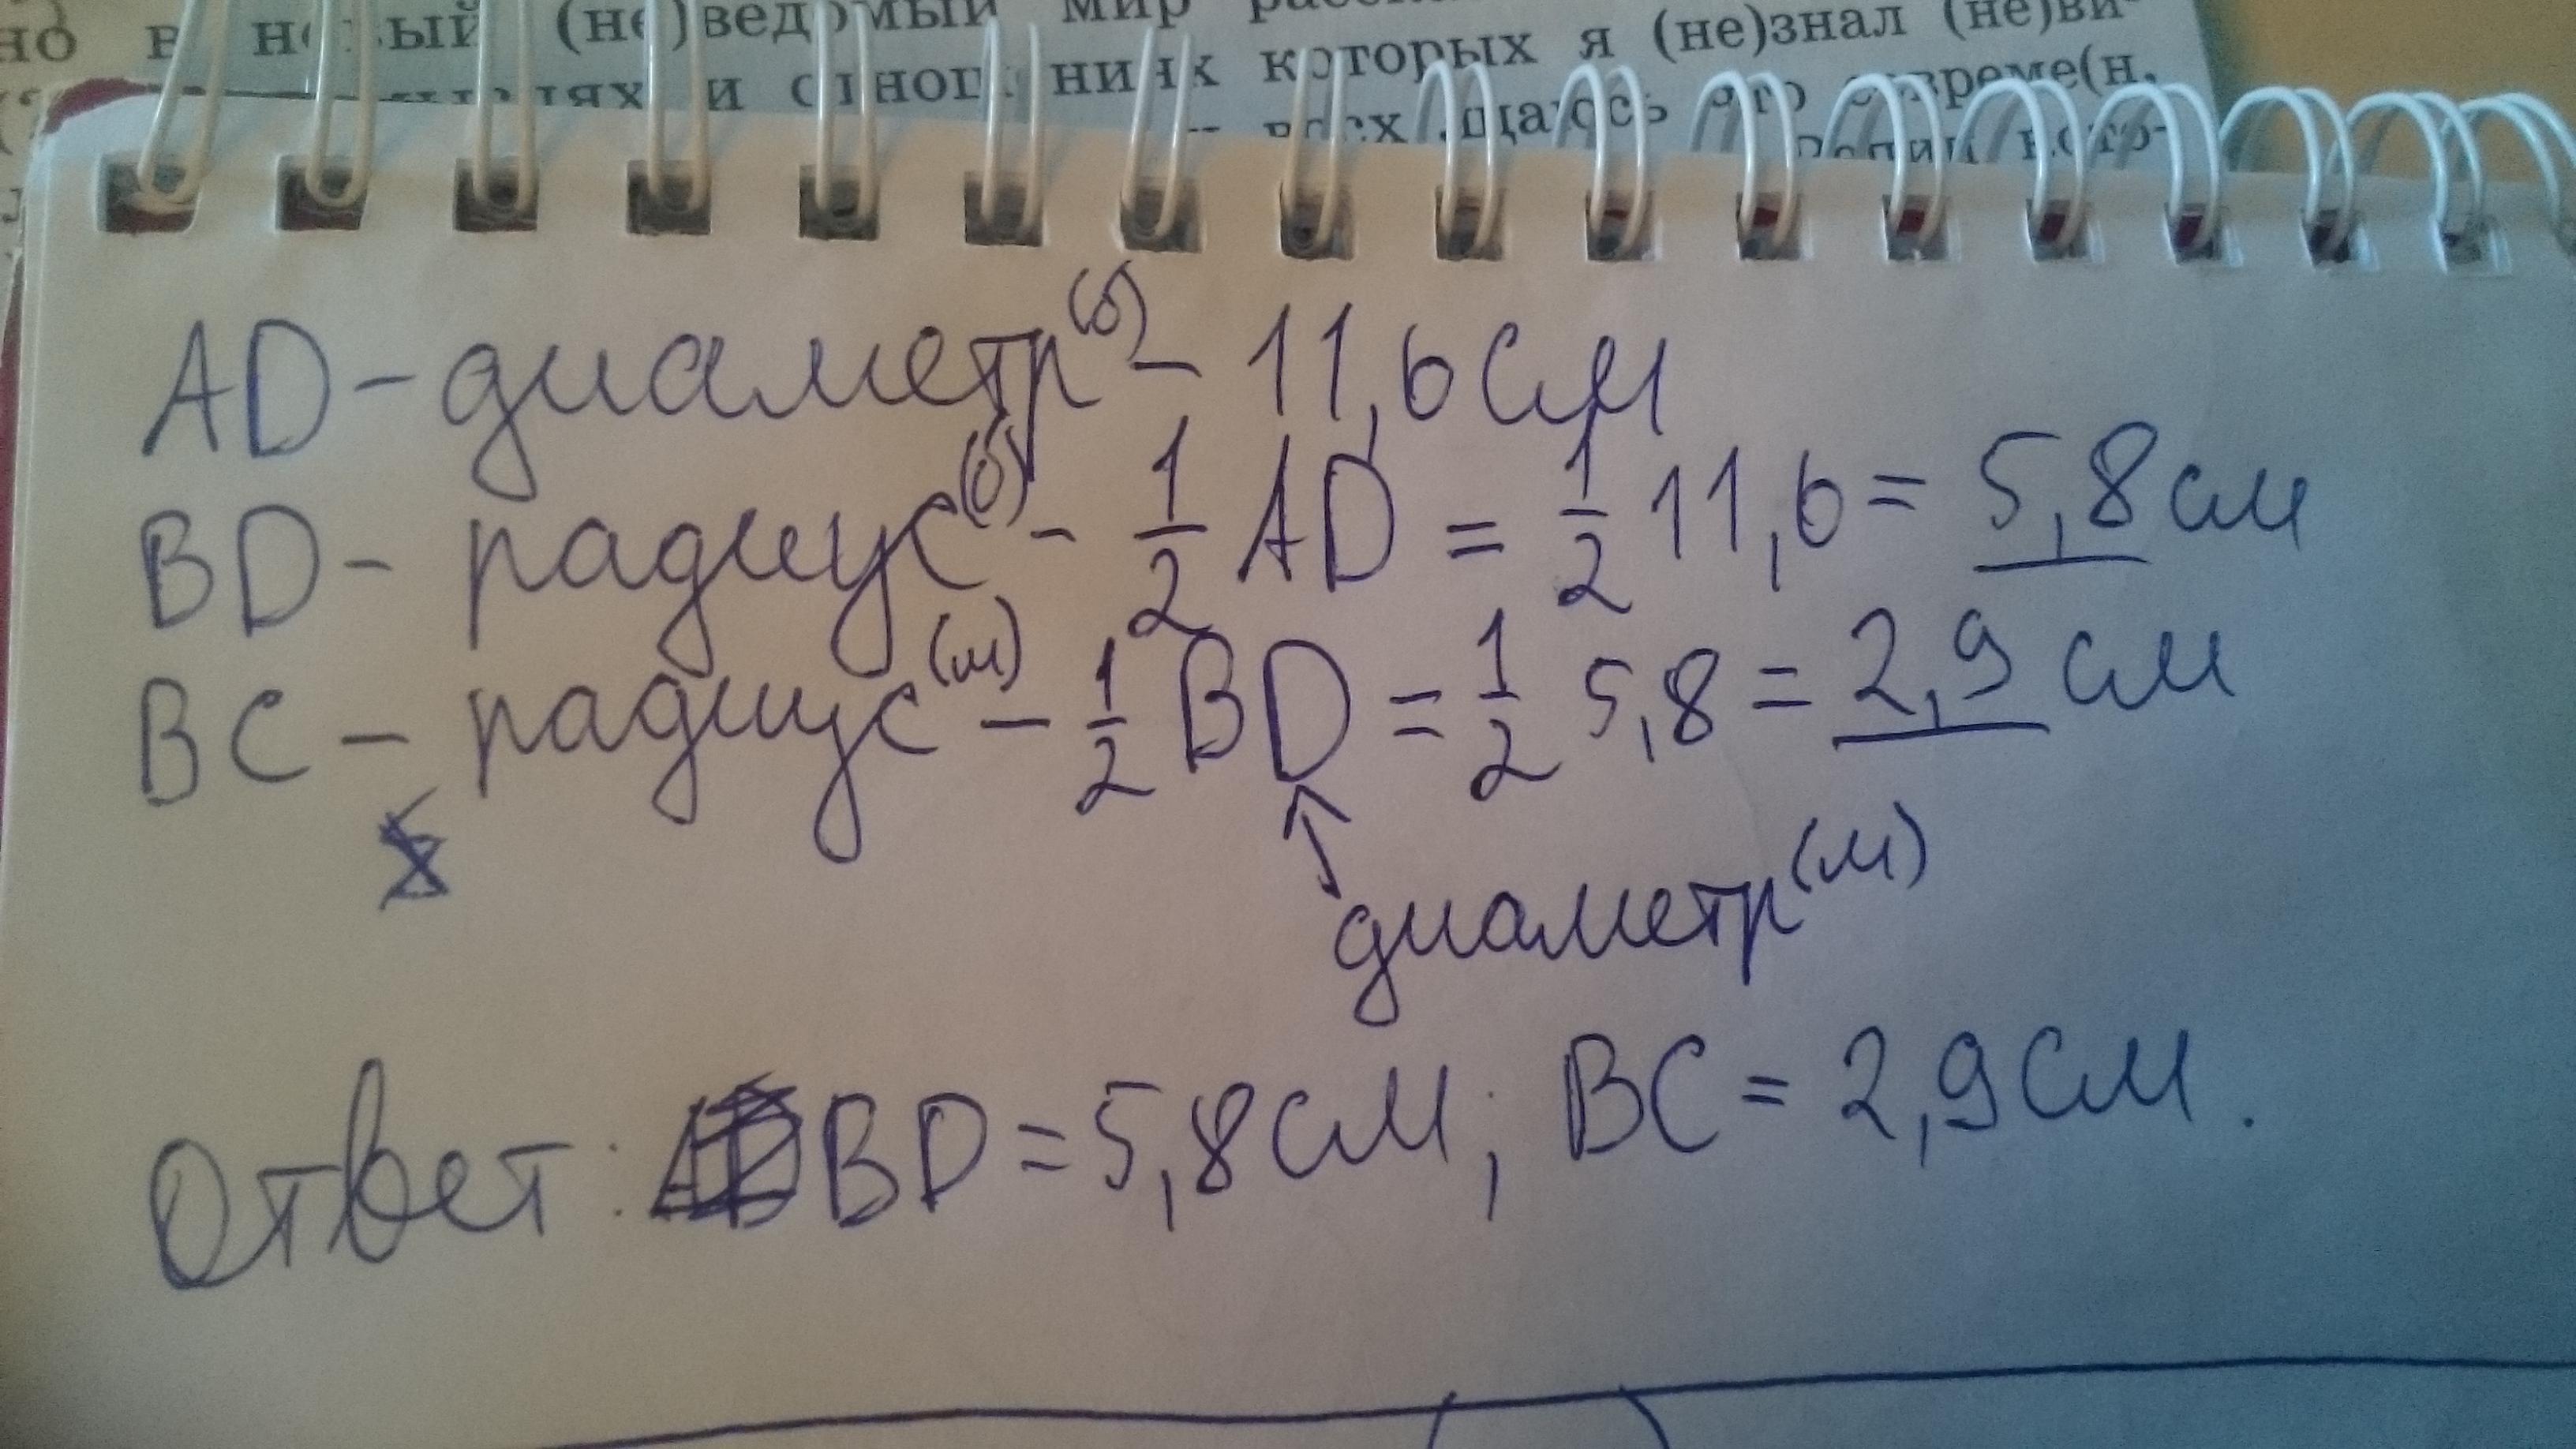 но в но вый (не)ведомый мир
и одноп никх которых я (не)знал (не)ви-
всех щаюсь что совреме(н,
кото-
AD - диаметр(б) - 11,6 см
BD - радиус(б) - 1/2 AD = 1/2 11,6 = 5,8 см
BC - радиус(м) - 1/2 BD = 1/2 5,8 = 2,9 см
диаметр(м)
Ответ: BD = 5,8 см; BC = 2,9 см.